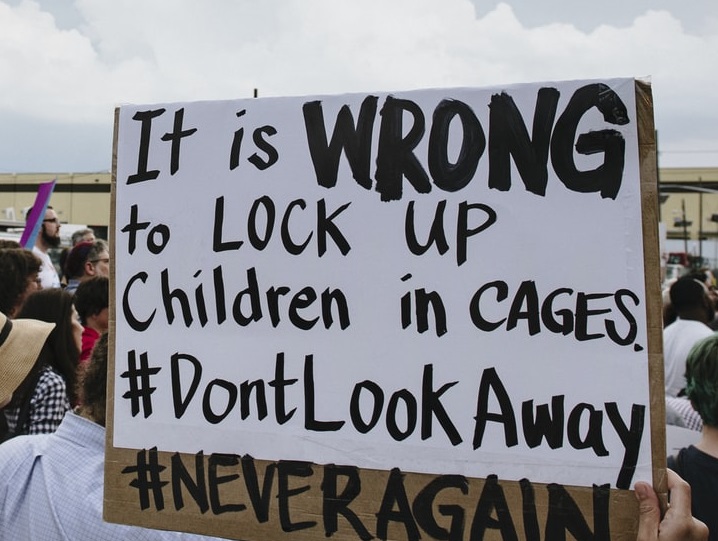 It is WRONG
to LOCK UP
Children in CAGES.
#DontLookAway
#NEVERAGAIN